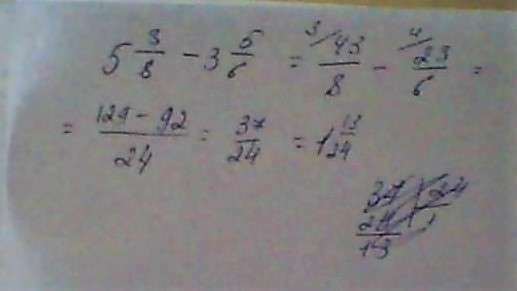 5 3/8 - 3 5/6 = 3/ 43/8 - 4/ 23/6 =
= 129 - 92 / 24 = 37/24 = 1 13/24
37 | 24
24 | 1
13